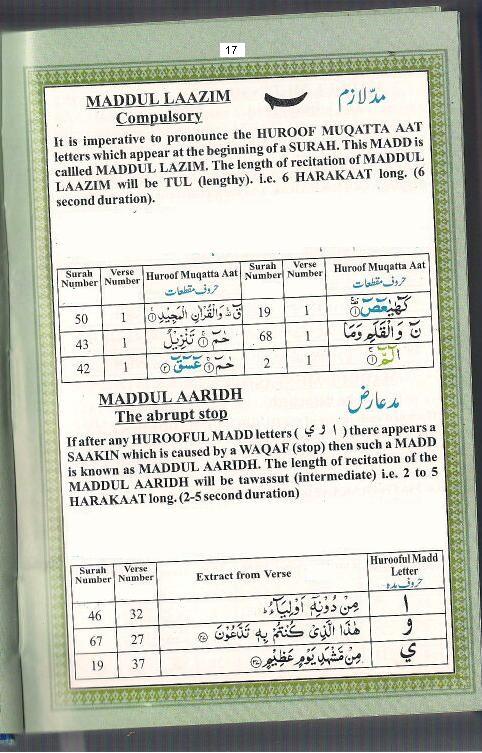 17
MADDUL LAAZIM
Compulsory
مدّ لازم
It is imperative to pronounce the HUROOF MUQATTA AAT
letters which appear at the beginning of a SURAH. This MADD is
callled MADDUL LAZIM. The length of recitation of MADDUL
LAAZIM will be TUL (lengthy). i.e. 6 HARAKAAT long. (6
second duration).
Surah Number Verse Number Huroof Muqatta Aat حروف مقطعات Surah Number Verse Number Huroof Muqatta Aat حروف مقطعات
50 1 قٓ ۚ وَالْقُرْاٰنِ الْمَجِيْدِ ۝١ 19 1 كٓهٰيٰعٓصٓ ۝١
43 1 حٰمٓ ۝١ تَنْزِيْلٌ 68 1 نٓ وَالْقَلَمِ وَمَا
42 1 حٰمٓ ۝١ عٓسٓقٓ ۝٢ 2 1 الٓمّٓ ۝١
MADDUL AARIDH
The abrupt stop
مد عارض
If after any HUROOFUL MADD letters ( ا و ي ) there appears a
SAAKIN which is caused by a WAQAF (stop) then such a MADD
is known as MADDUL AARIDH. The length of recitation of the
MADDUL AARIDH will be tawassut (intermediate) i.e. 2 to 5
HARAKAAT long. (2-5 second duration)
Surah Number Verse Number Extract from Verse Huroofful Madd Letter حروف مده
46 32 مِنْ دُوْنِهٖٓ اَوْلِيَآءُ ؕ ا
67 27 هٰذَا الَّذِيْ كُنْتُمْ بِهٖ تَدَّعُوْنَ ۝٢٧ و
19 37 مِنْ مَّشْهَدِ يَوْمٍ عَظِيْمٍ ۝٣٧ ي